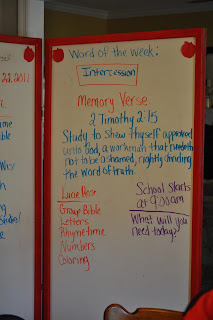 22, 2011
Word of the Week:
Intercession
Memory Verse:
2 Timothy 2:15
Study to Shew thyself approved
unto God, a workman that needeth
not to be ashamed, rightly dividing
the word of truth.
Lucie Rose
Group Bible
Letters
Rhyme time
Numbers
Coloring
School Starts
at 9:00 am
What will you
need today?